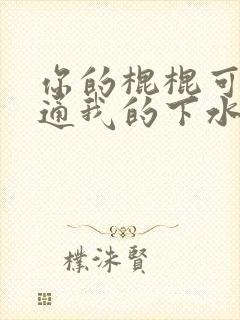 你的棍棍可
通我的下水
樸洙賢